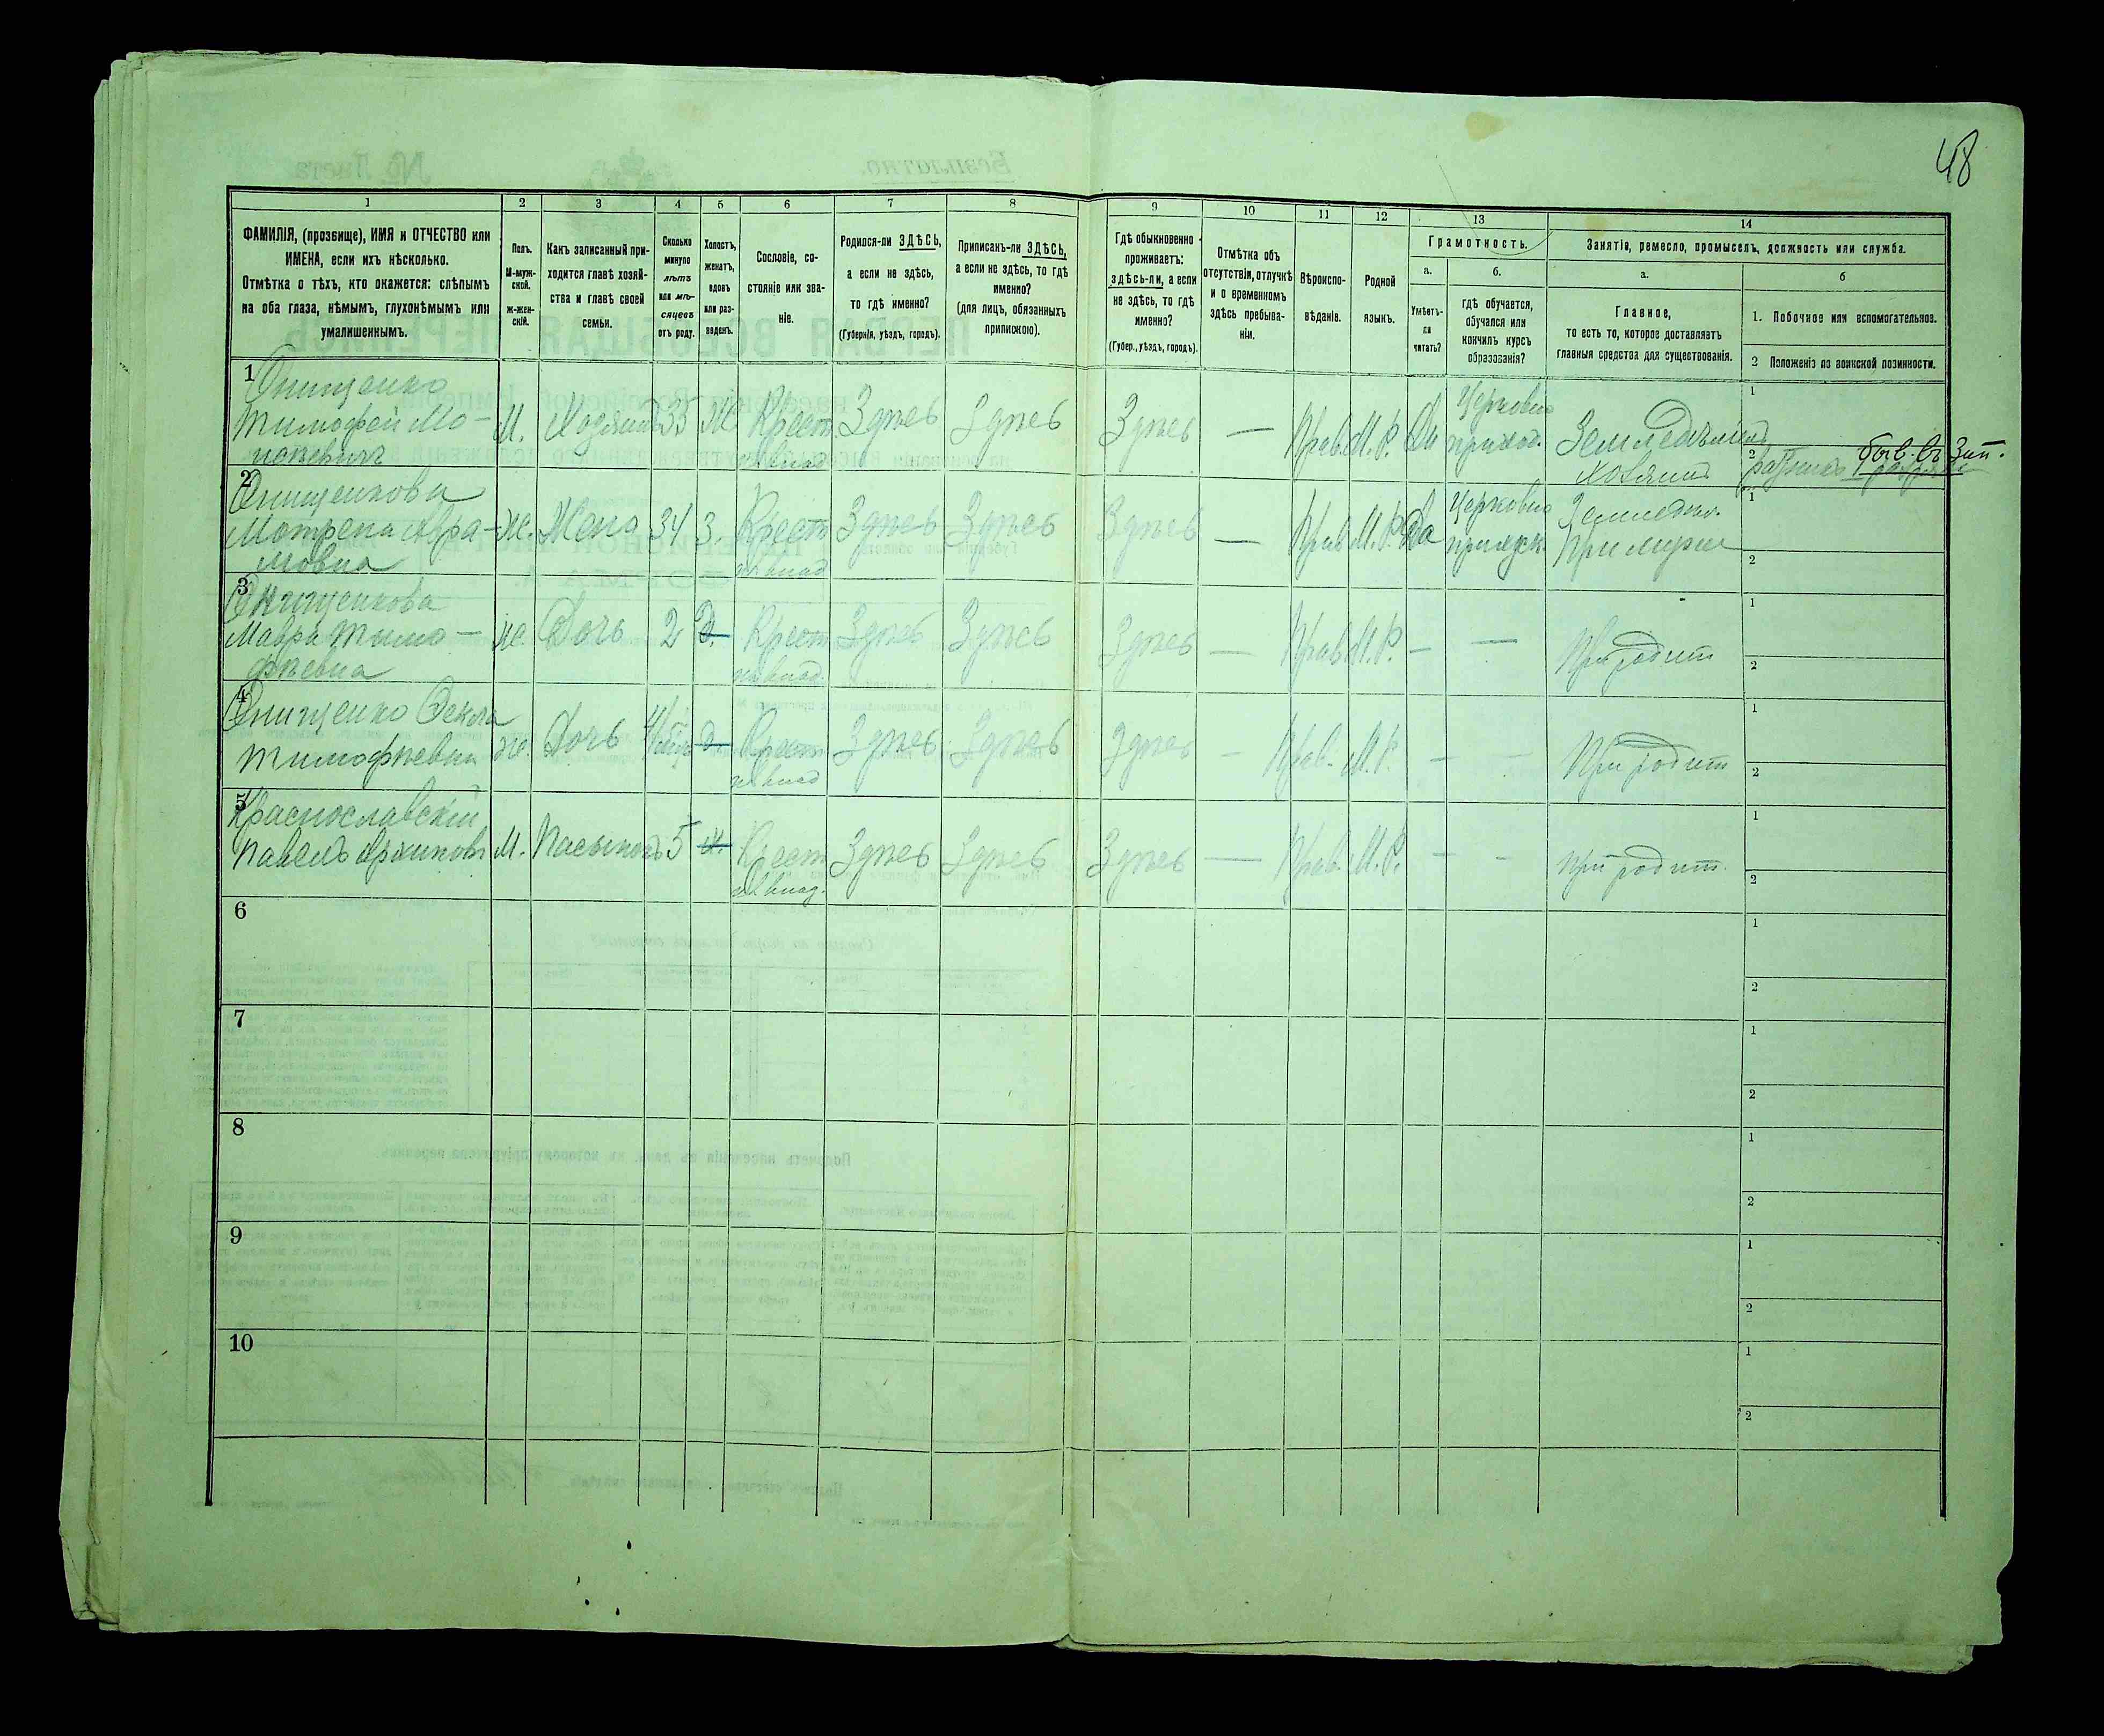 48
1
2
3
4
5
6
7
8
9
10
11
12
13
14
ФАМИЛІЯ, (прозвище), ИМЯ и ОТЧЕСТВО или
ИМЕНА, если ихъ нѣсколько.
Отмѣтка о тѣхъ, кто окажется: слѣпымъ
на оба глаза, нѣмымъ, глухонѣмымъ или
умалишеннымъ.
Полъ.
М-муж-
ской.
ж-жен-
скій.
Какъ записанный при-
ходится главѣ хозяй-
ства и главѣ своей
семьи.
Сколько
минуло
лѣтъ
или мѣ-
сяцевъ
отъ роду.
Холостъ,
женатъ,
вдовъ
или раз-
веденъ.
Сословіе, со-
стояніе или зва-
ніе.
Родился-ли ЗДѢСЬ,
а если не здѣсь,
то гдѣ именно?
(Губернія, уѣздъ, городъ).
Приписанъ-ли ЗДѢСЬ,
а если не здѣсь, то гдѣ
именно?
(для лицъ, обязанныхъ
припискою).
Гдѣ обыкновенно
проживаетъ:
здѣсь-ли, а если
не здѣсь, то гдѣ
именно?
(Губер., уѣздъ, городъ).
Отмѣтка объ
отсутствіи, отлучкѣ
и о временномъ
здѣсь пребыва-
ніи.
Вѣроиспо-
вѣданіе.
Родной
языкъ.
Грамотность.
а.
Умѣетъ-
ли
читать?
б.
гдѣ обучается,
обучался или
кончилъ курсъ
образованія?
Занятіе, ремесло, промыселъ, должность или служба.
а.
Главное,
то есть то, которое доставляетъ
главныя средства для существованія.
б
1. Побочное или вспомогательное.
2 Положеніе по воинской повинности.
1 Онищенко
Тимофей Мо-
исѣевичъ
М. Хозяинъ 33 Ж Крест. Здѣсь Здѣсь Здѣсь — Прав. М. Р. Да
Церковно
приход.
Земледѣлецъ
хозяинъ
1
2
быв. въ зап.
2 Онищенкова
Мотрена Авра-
мовна
ж. Жена 34 З. Крест Здѣсь Здѣсь Здѣсь — Прав М. Р. Да
Церковно
приход.
1
2
3 Онищенкова
Мавра Тимо-
фѣевна
ж. Дочь 2 Д. Крест Здѣсь Здѣсь Здѣсь — Прав М. Р. — — При родит
1
2
4 Онищенко Фекла
Тимофѣевна
ж. Дочь Д. Крест Здѣсь Здѣсь Здѣсь — Прав. М. Р. — — При родит
1
2
5 Краснославскій
Павелъ
М. Пасынокъ 5 Крест Здѣсь Здѣсь Здѣсь — Прав. М. Р. — — При родит.
1
2
6
1
2
7
1
2
8
1
2
9
1
2
10
1
2